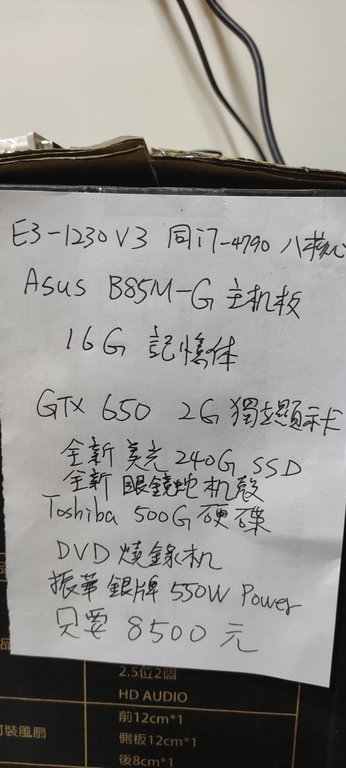 E3-1230V3 同i7-4790 八核心
Asus B85M-G 主机板
16G 記憶体
GTX 650 2G 獨立顯示卡
全新 美光 240G SSD
全新 眼鏡蛇 机殼
Toshiba 500G 硬碟
DVD 燒錄机
振華 銀牌 550W Power
只要 8500 元
2.5位2個
HD AUDIO
前12cm*1
可裝風扇
側板12cm*1
後8cm*1